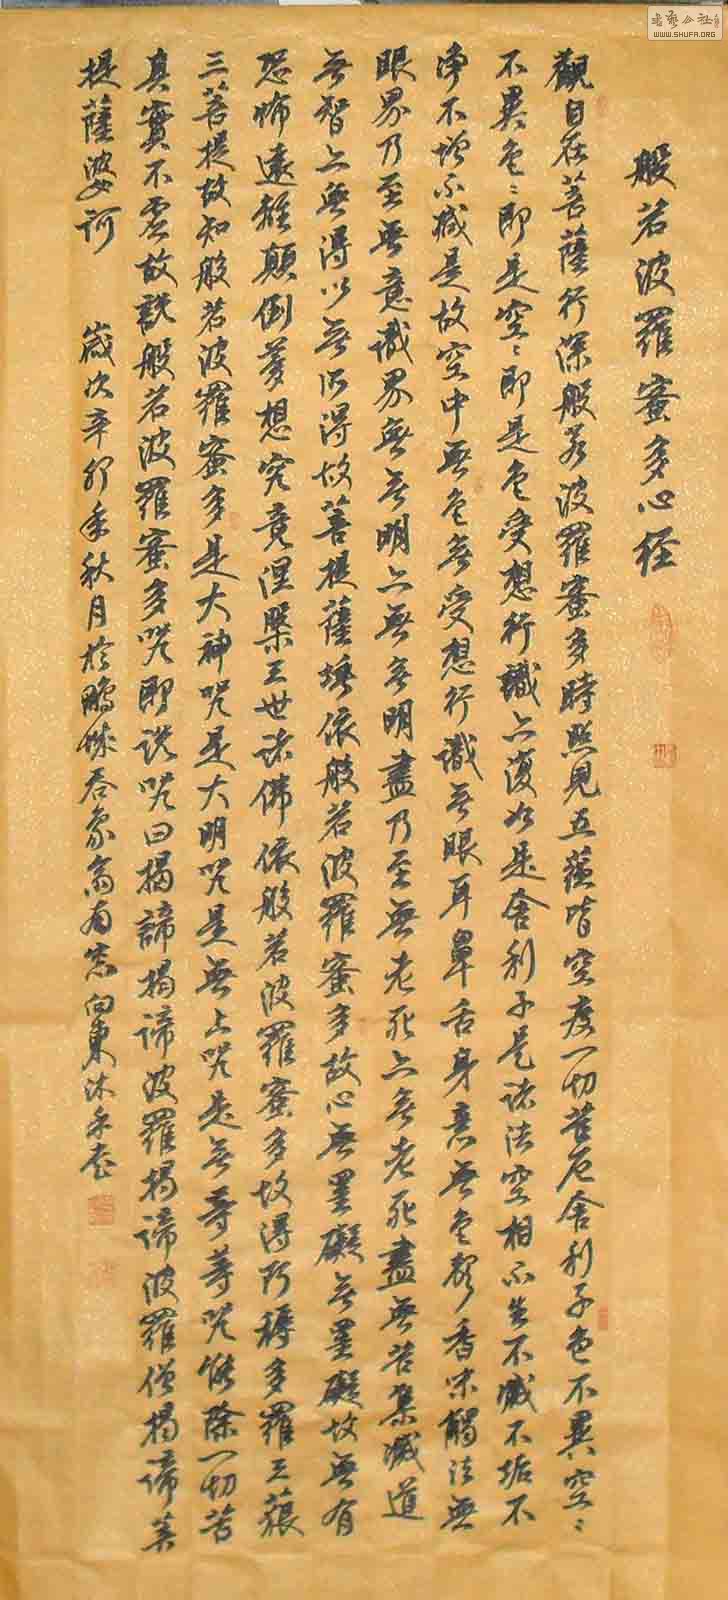 般若波羅蜜多心經
觀自在菩薩行深般若波羅蜜多時照見五蘊皆空度一切苦厄舍利子色不異空〻
不異色〻即是空〻即是色受想行識亦復如是舍利子是諸法空相不生不滅不垢不
淨不增不減是故空中無色無受想行識無眼耳鼻舌身意無色聲香味觸法無
眼界乃至無意識界無無明亦無無明盡乃至無老死亦無老死盡無苦集滅道
無智亦無得以無所得故菩提薩埵依般若波羅蜜多故心無罣礙無罣礙故無有
恐怖遠離顛倒夢想究竟涅槃三世諸佛依般若波羅蜜多故得阿耨多羅三藐
三菩提故知般若波羅蜜多是大神咒是大明咒是無上咒是無等等咒能除一切苦
真實不虛故說般若波羅蜜多咒即說咒曰揭諦揭諦波羅揭諦波羅僧揭諦菩
提薩婆訶 歲次辛卯年秋月於鵬城吞象翁南窓向東沐手書
書藝公社
WWW.SHUFA.ORG